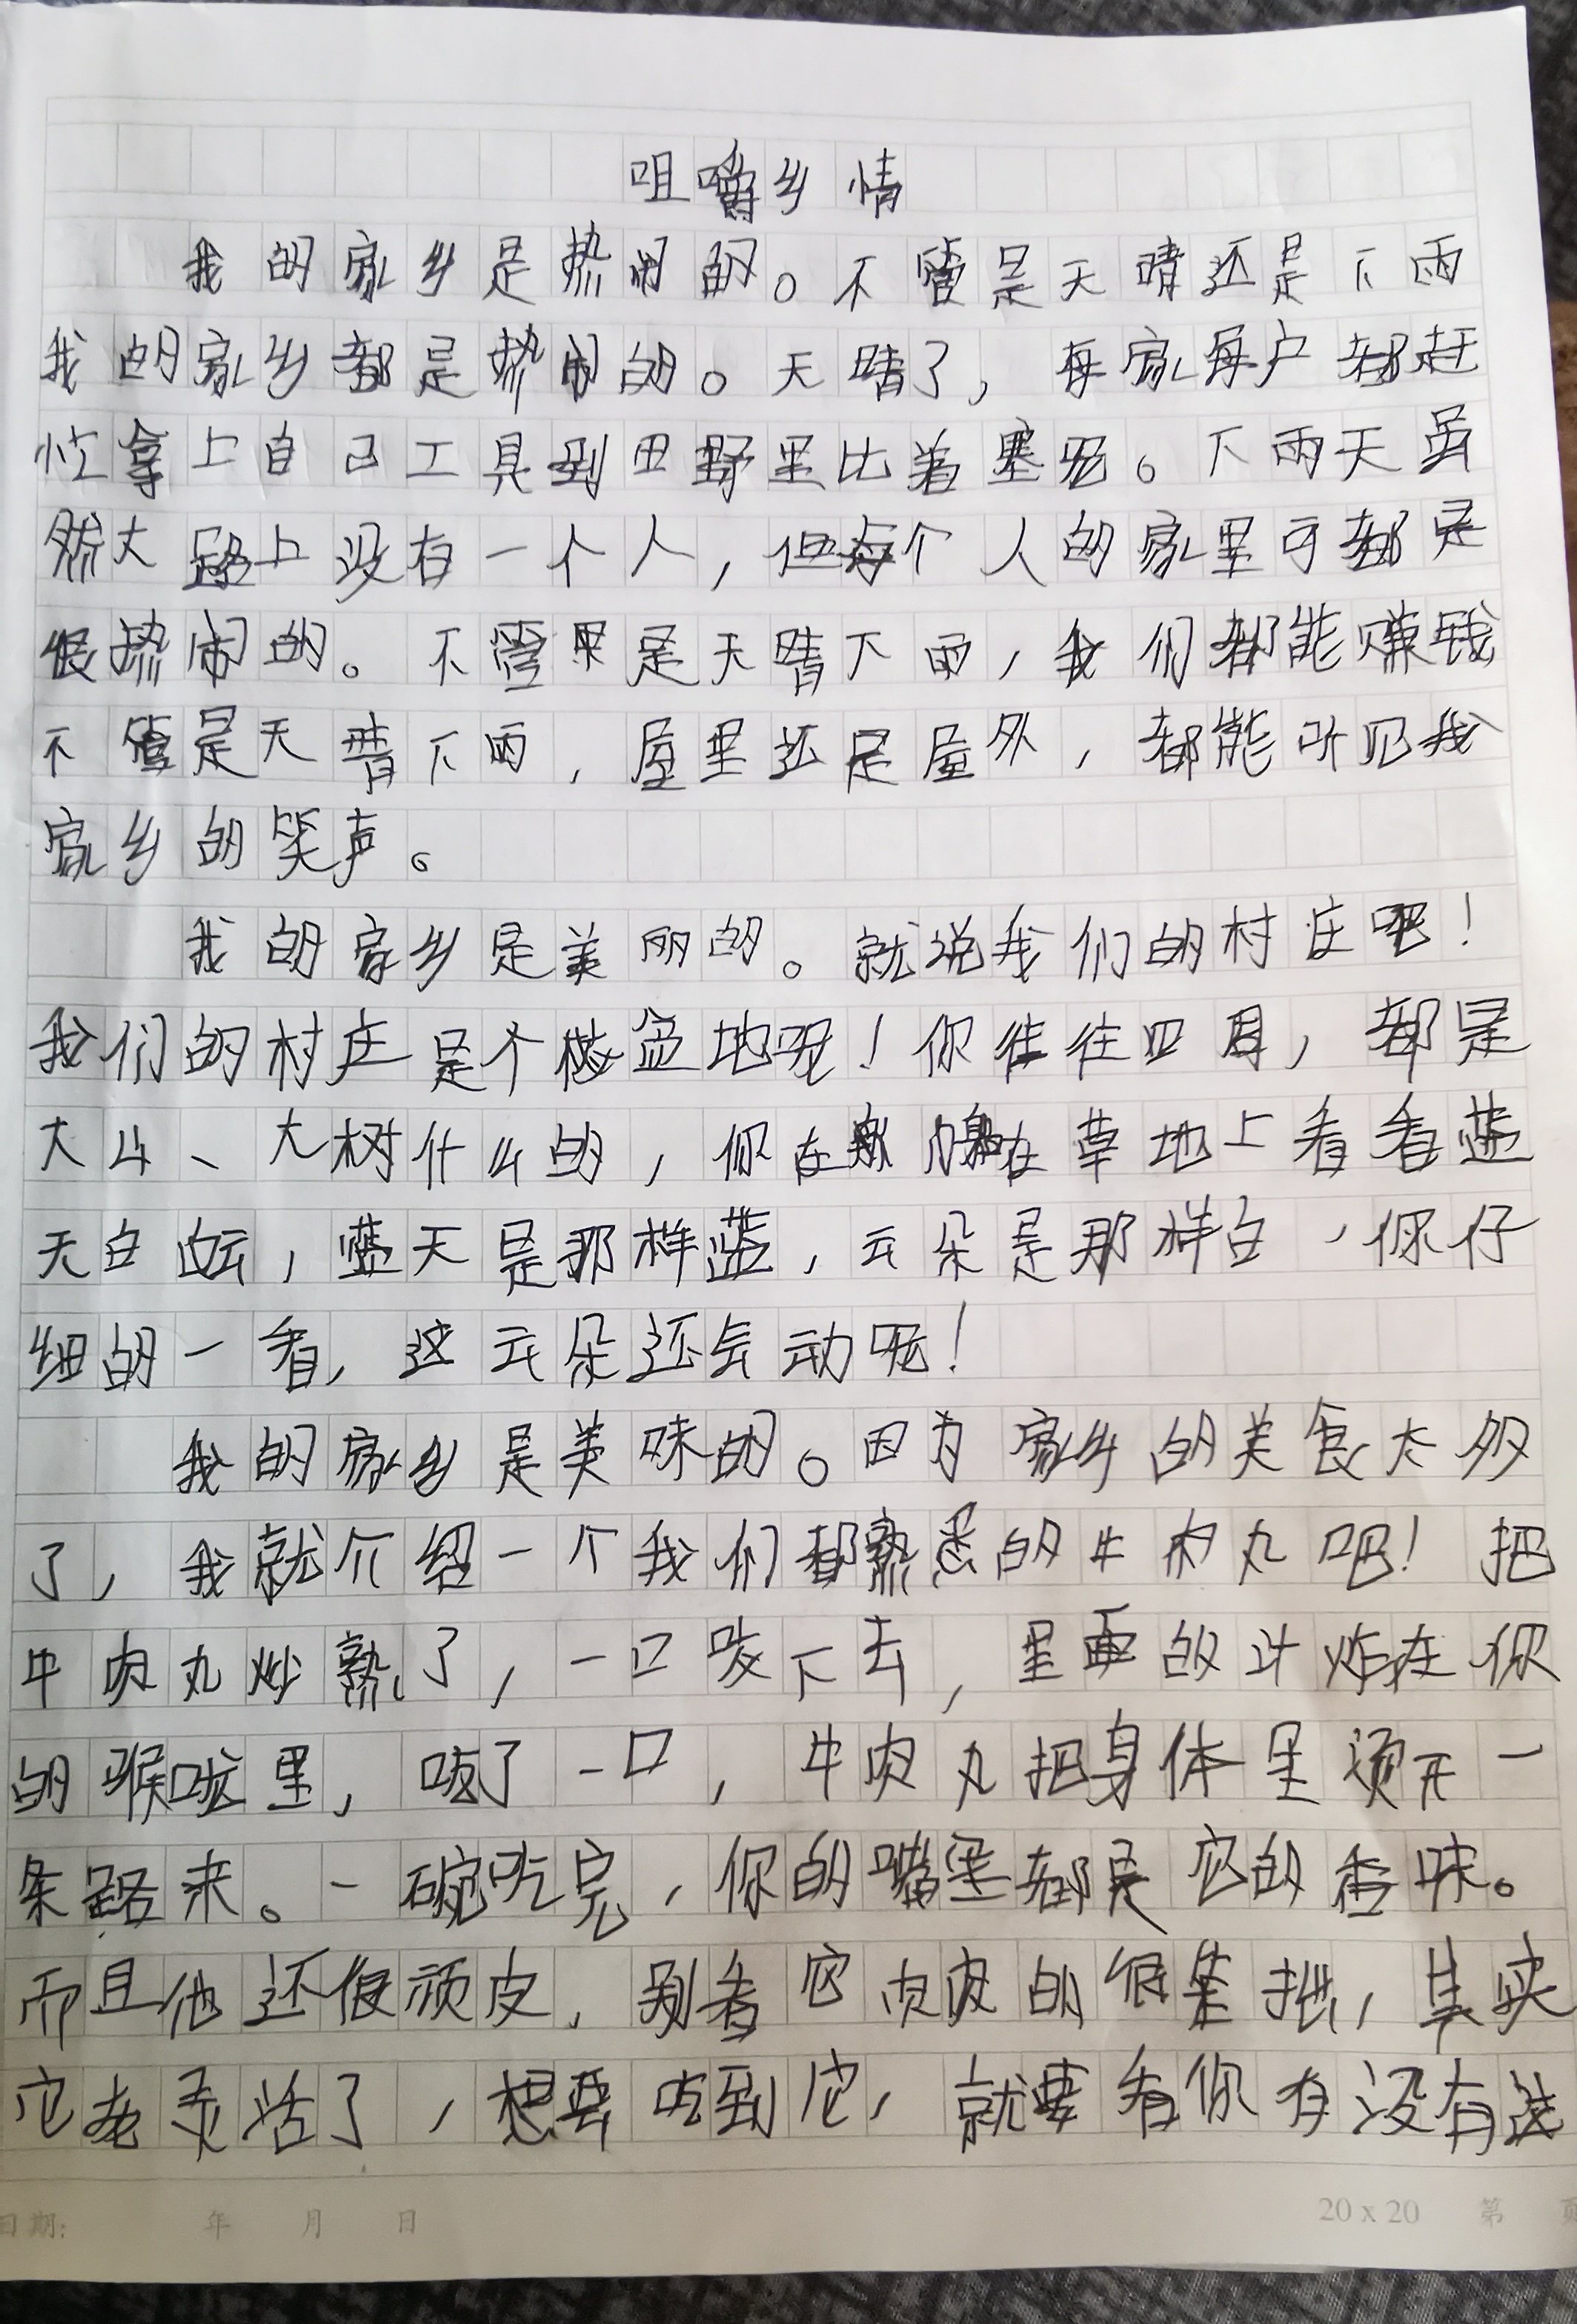 咀嚼乡情
我的家乡是热闹的。不管是天晴还是下雨
我的家乡都是热闹的。天晴了，每家每户都赶
忙拿上自己工具到田野里比着塞呢。下雨天虽
然大路上没有一个人，但每个人的家里可都是
很热闹的。不管果是天晴下雨，我们都能赚钱
不管是天晴下雨，屋里还是屋外，都能听见我
家乡的笑声。
我的家乡是美丽的。就说我们的村庄吧！
我们的村庄是个盆地呢！你往往四周，都是
大山、大树什么的，你在躺在草地上看看蓝
天白云，蓝天是那样蓝，云朵是那样白，你仔
细的一看，这云朵还会动呢！
我的家乡是美味的。因为家乡的美食太多
了，我就介绍一个我们都熟悉的牛肉丸吧！把
牛肉丸炒熟了，一口咬下去，里面的汁炸在你
的喉咙里，咳了一口，牛肉丸把身体里烫开一
条路来。一碗吃完，你的嘴里都是它的香味。
而且他还很顽皮，别看它肉肉的很笨拙，其实
它老灵活了，想要吃到它，就要看你有没有这
日期： 年 月 日 20x20 第 页